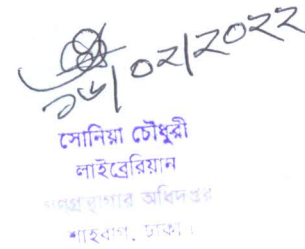 ১৬/০২/২০২২
সোনিয়া চৌধুরী
লাইব্রেরিয়ান
গণগ্রন্থাগার অধিদপ্তর
শাহবাগ, ঢাকা।